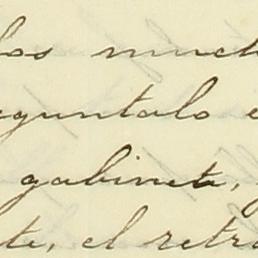 los much
eguntalo e
gabinete,
te, el retra